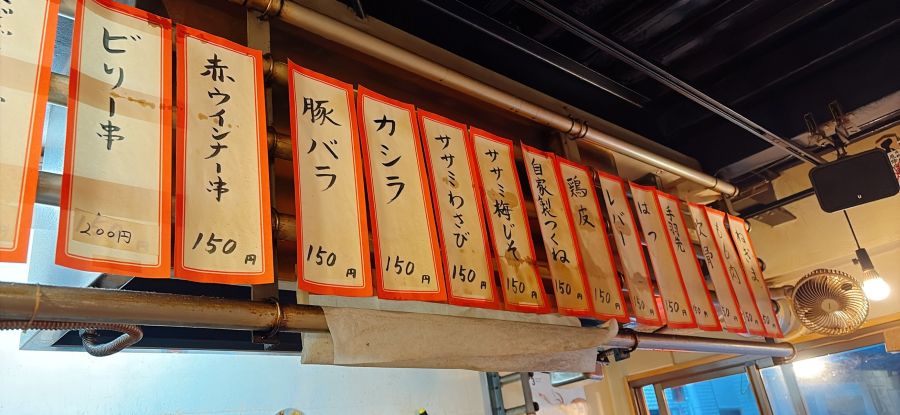 ビリー串
200円
赤ウインナー串
150円
豚バラ
150円
カシラ
150円
ササミわさび
150円
ササミ梅じそ
150円
自家製つくね
150円
鶏皮
150円
レバー
150円
はつ
150円
手羽先
150
150
もも肉
150
ねぎま
150